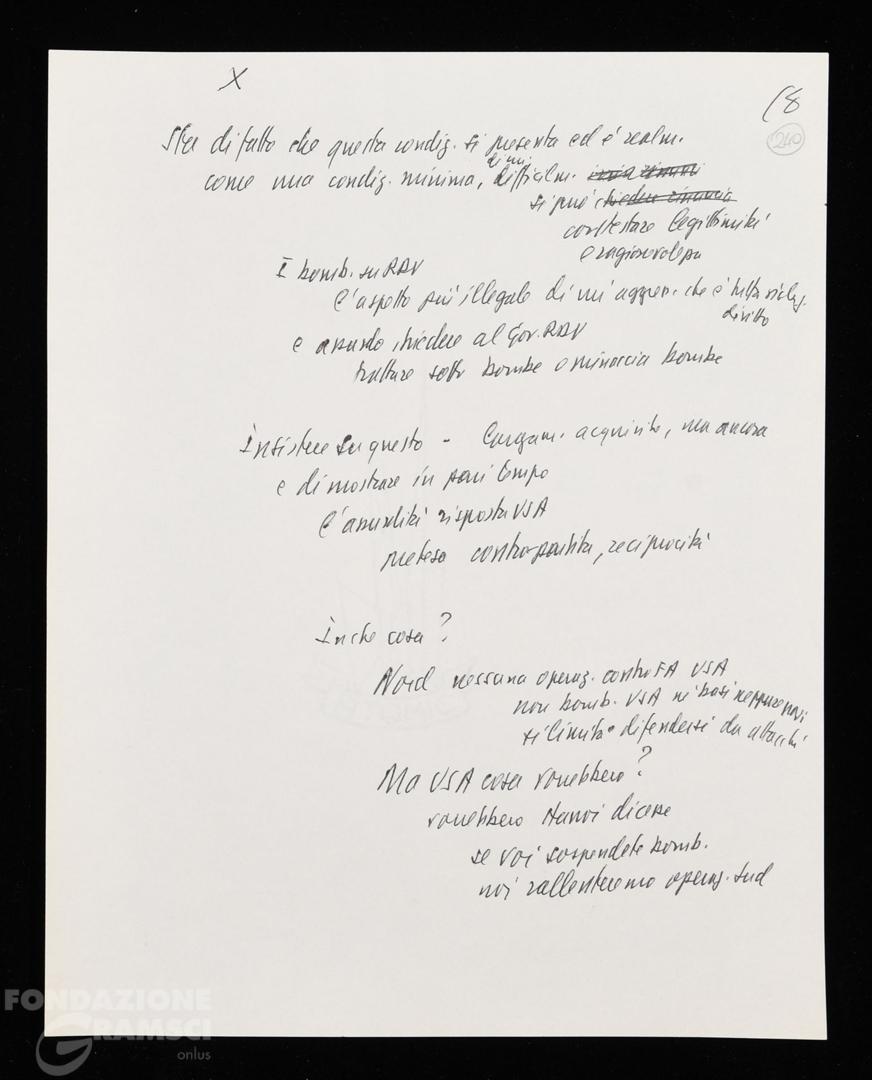 X
18
240
Sta di fatto che questa condiz. si presenta ed è realm.
come una condiz. minima, difficilm.
si può chiedere rinuncia
contestare legittimità
e ragionevolezza
I bomb. su RDV
l'aspetto più illegale di un'aggress. che è tutta violaz.
diritto
e assurdo chiedere al Gov. RDV
trattare sotto bombe o minaccia bombe
Insistere su questo - largam. acquisito, ma ancora
e dimostrare in pari tempo
l'assurdità risposta USA
pretesa contropartita, reciprocità
In che cosa?
Nord nessuna operaz. contro FA USA
non bomb. USA né basi neppure navi
si limita difendersi da attacchi
Ma USA cosa vorrebbero?
vorrebbero Hanoi dicesse
se voi sospendete bomb.
noi rallenteremo operaz. Sud
FONDAZIONE
GRAMSCI
onlus